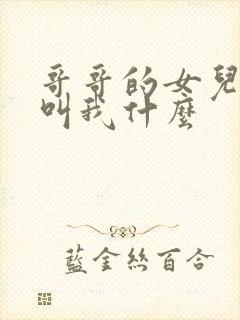 哥哥的女兒
叫我什麼
藍金絲百合